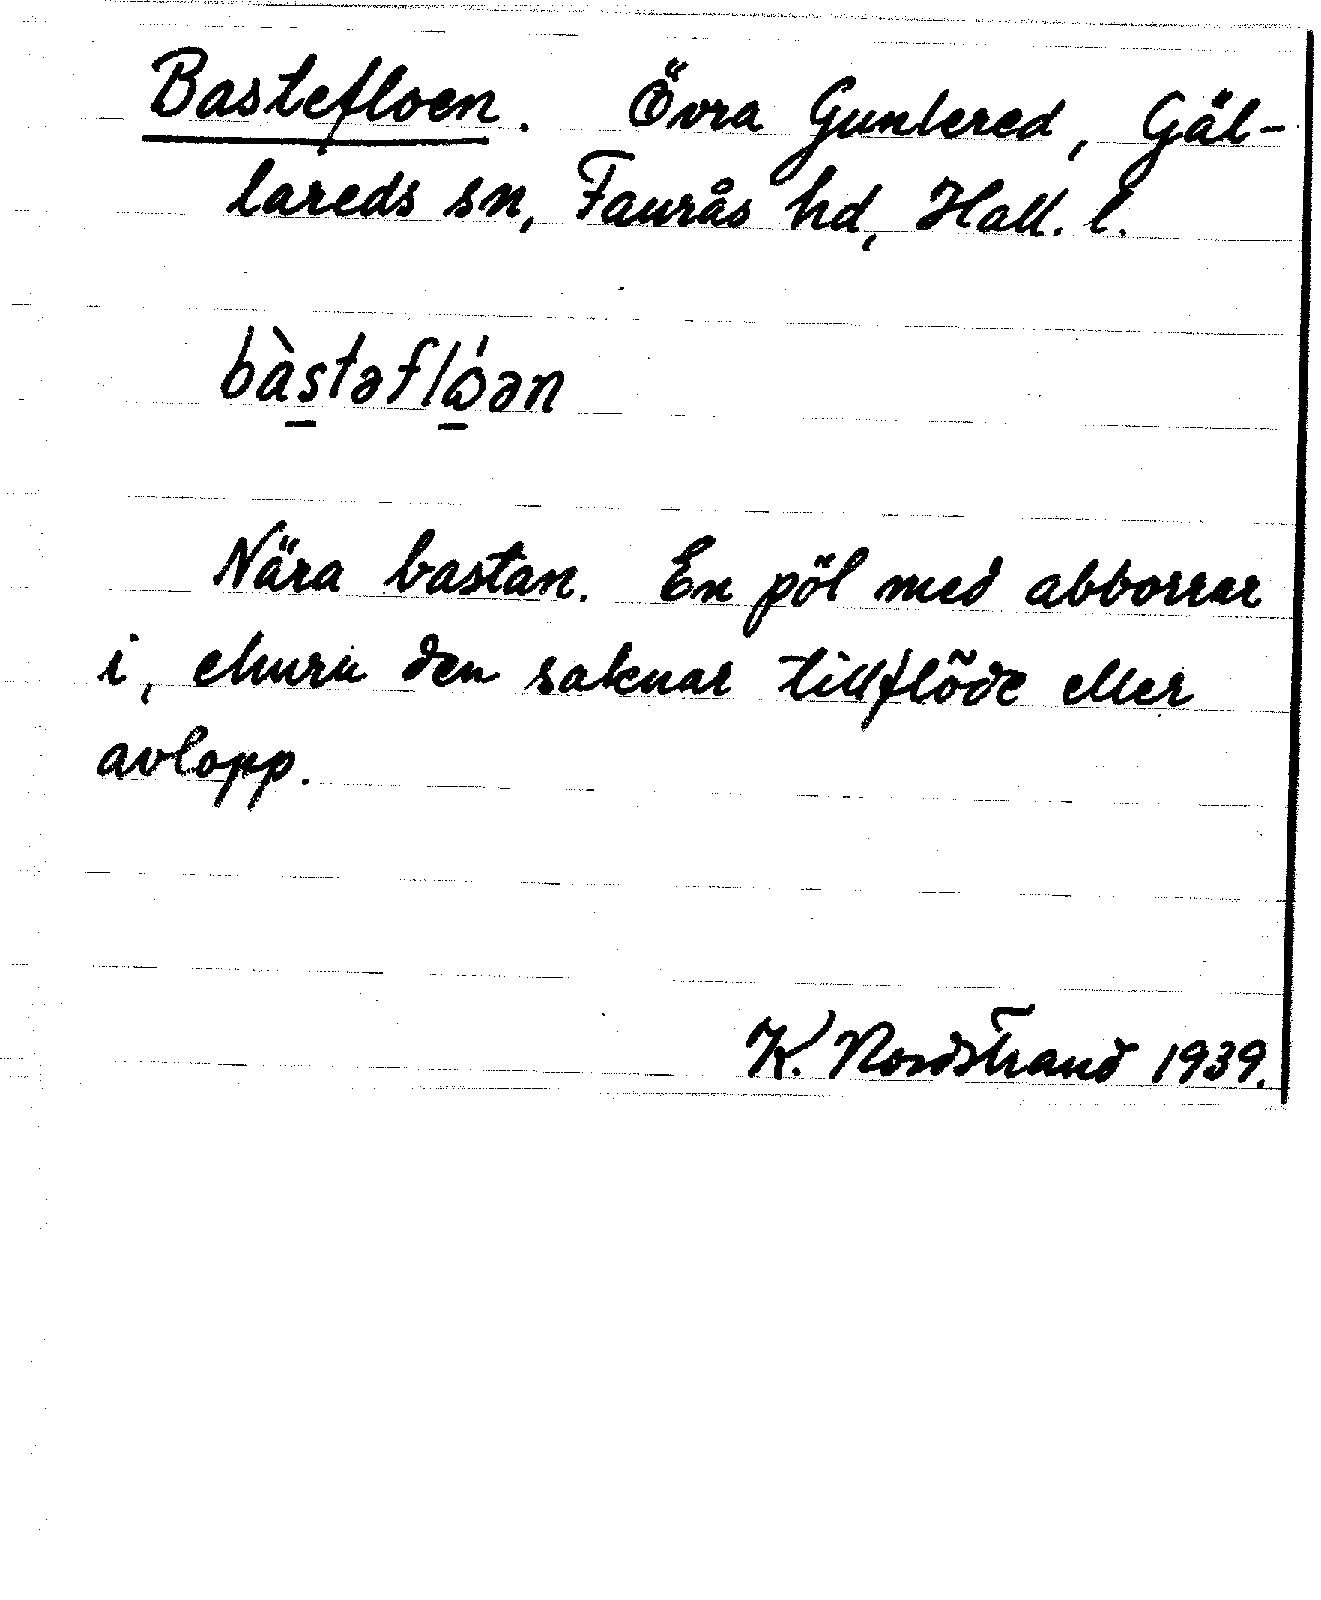 Bastefloen. Övra Gunlered, Gäl-
lareds sn, Faurås hd, Hall. l.
bàs̠təflώ̠ən
Nära bastan. En pöl med abborrar
i, ehuru den saknar tillflöde eller
avlopp.
K. Nordstrand 1939.